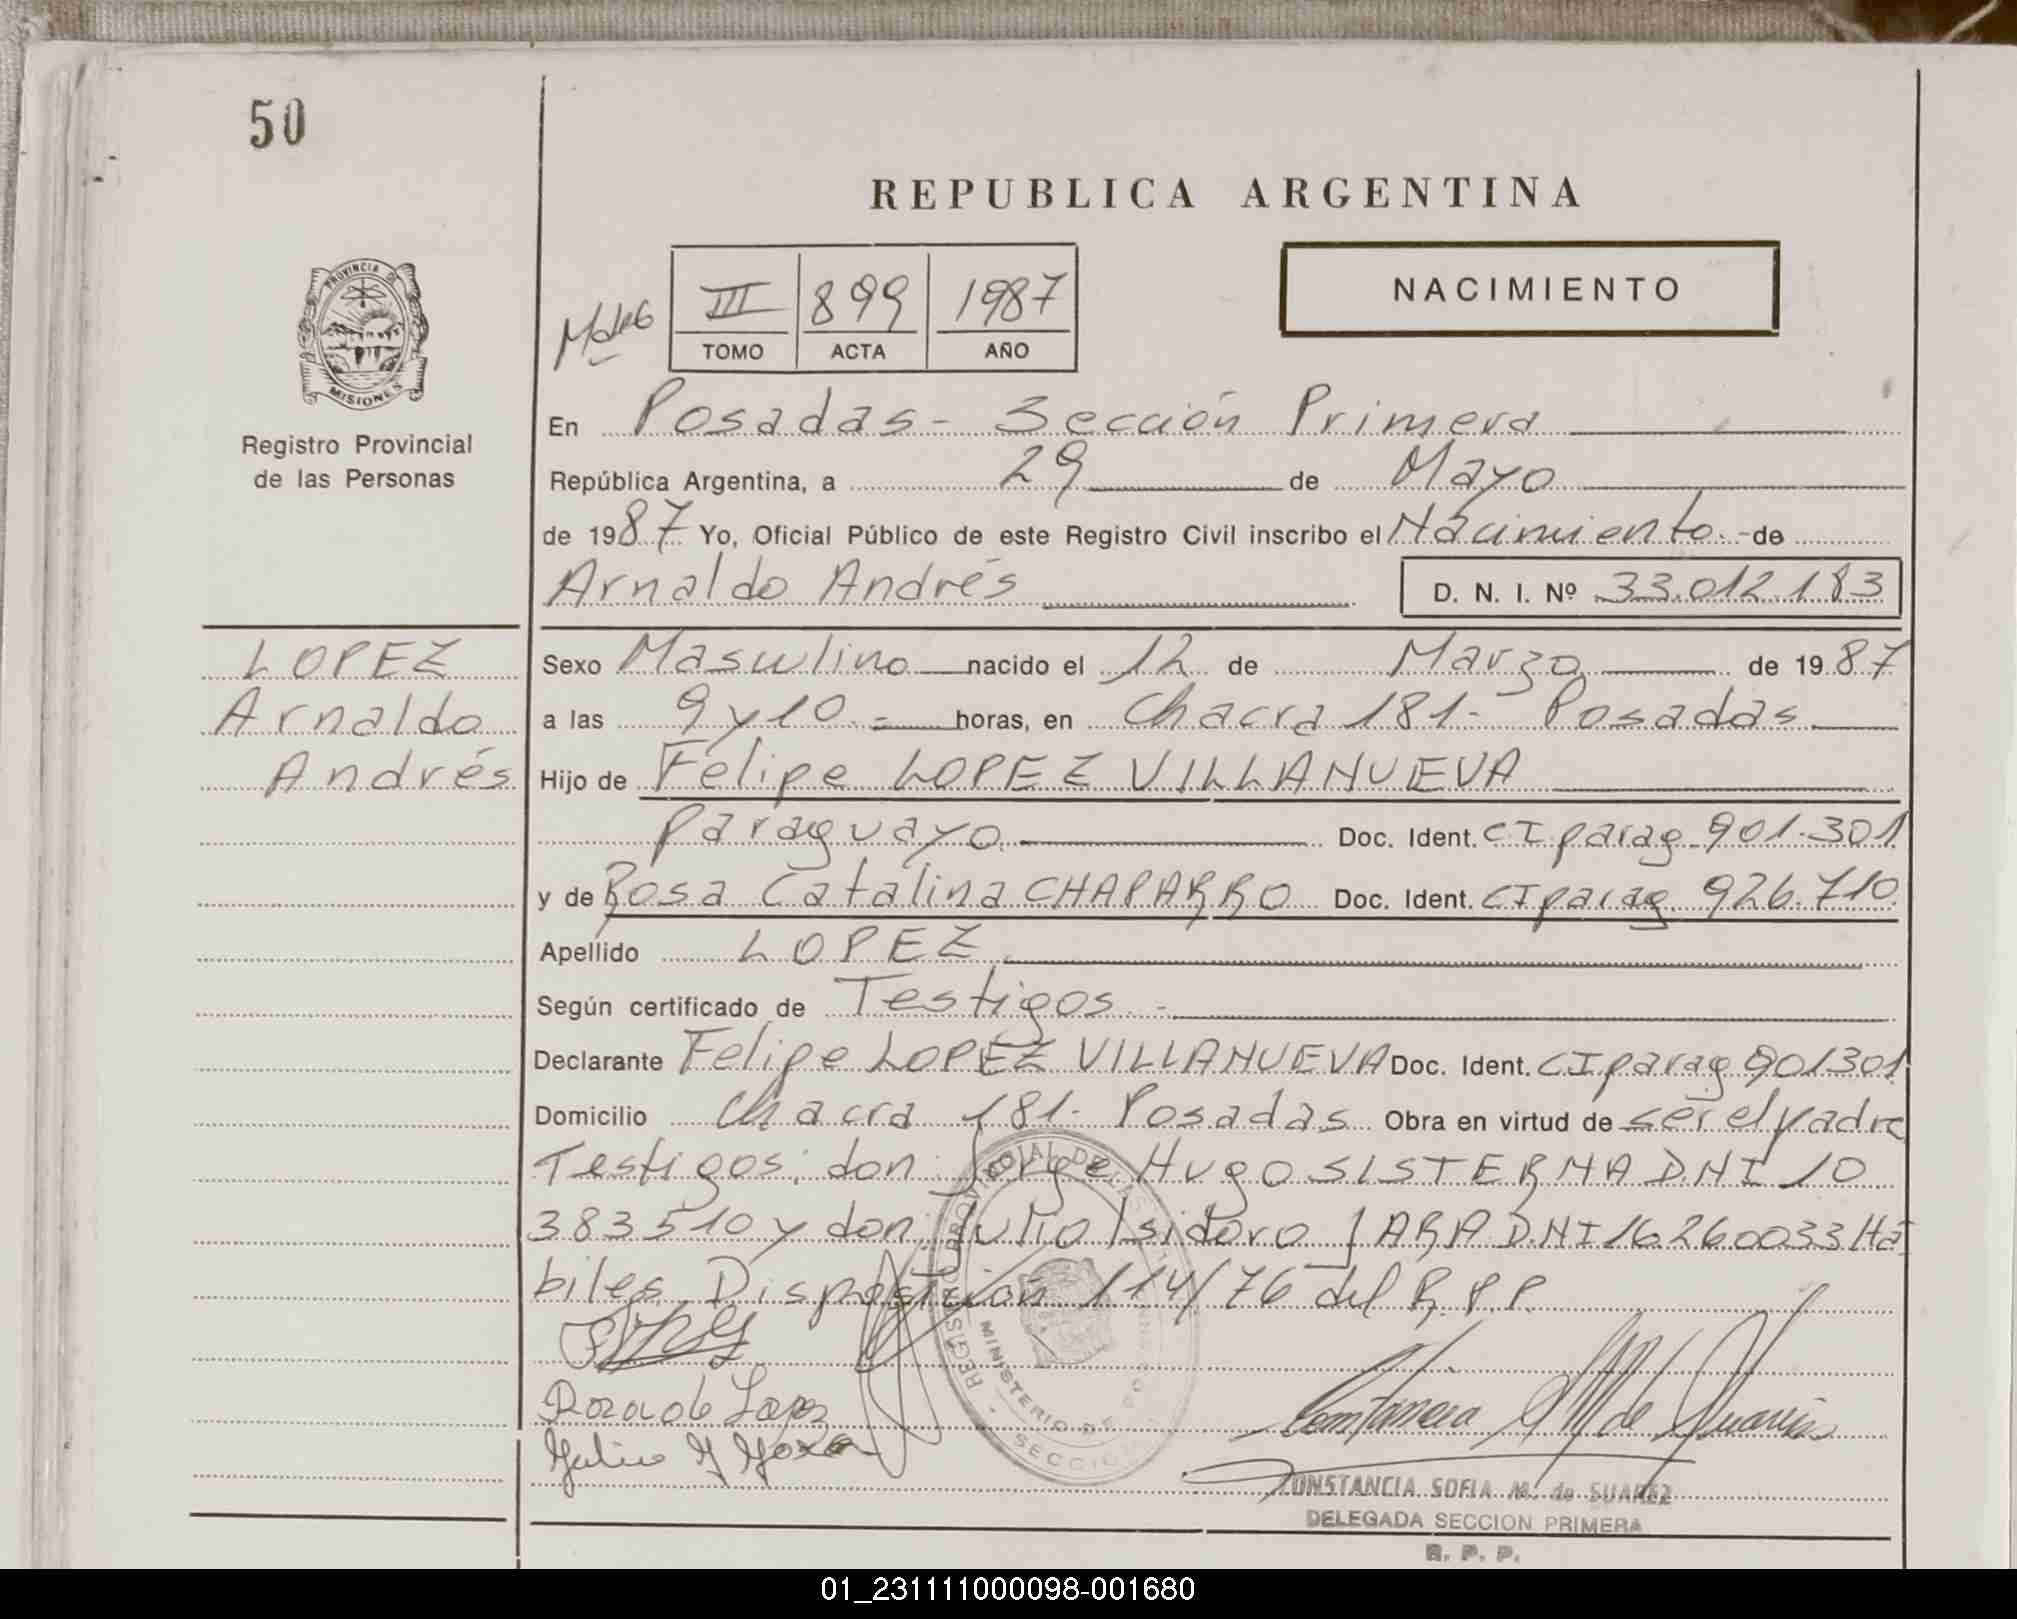 50
REPUBLICA ARGENTINA
NACIMIENTO
III 899 1987
TOMO ACTA AÑO
PROVINCIA DE MISIONES
Registro Provincial
de las Personas
En Posadas - Sección Primera
República Argentina, a 29 de Mayo
de 1987 Yo, Oficial Público de este Registro Civil inscribo el Nacimiento.- de
Arnaldo Andrés D. N. I. Nº 33.012.183
LOPEZ
Arnaldo
Andrés
Sexo Masculino nacido el 12 de Marzo de 1987
a las 9 y 10.- horas, en Chacra 181- Posadas
Hijo de Felipe LOPEZ VILLANUEVA
Paraguayo Doc. Ident. CI parag. 901.301
y de Rosa Catalina CHAPARRO Doc. Ident. CI parag. 926.710
Apellido LOPEZ
Según certificado de Testigos.-
Declarante Felipe LOPEZ VILLANUEVA Doc. Ident. CI parag 901301
Domicilio Chacra 181- Posadas Obra en virtud de ser el padre
Testigos: don Jorge Hugo SISTERNA D.N.I 10
383510 y don Julio Isidoro JARA D.N.I 16.260033 Há
biles. Disposición 114/76 del R.P.P.
Rosa de Lopez
CONSTANCIA SOFIA M. de SUAREZ
DELEGADA SECCION PRIMERA
R. P. P.
01_231111000098-001680